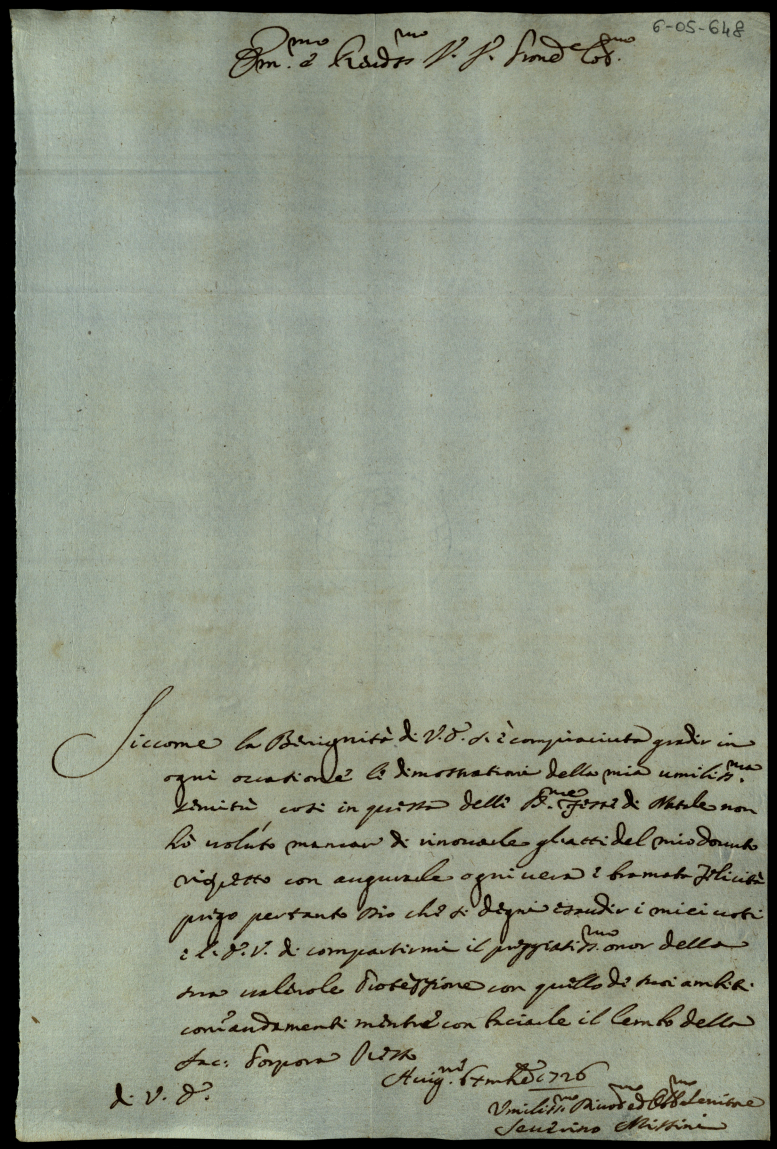 6-05-648
Em.mo e Rev.mo
Siccome la Benignità di V. E. si è compiaciuta gradir in
ogni occasione le dimostrationi della mia umiliss.ma
servitù così in questa delle S.me feste di Natale non
hò voluto mancar di rinovarle gl'atti del mio dovuto
rispetto con augurarle ogni vera e bramata felicità
prego pertanto Dio che si degni esaudir i miei voti
e l'E. V. di compartirmi il preggiatiss.mo onor della
sua valevole Protezzione con quello de suoi ambiti
comandamenti mentre con baciarle il lembo della
Sac: Porpora Resto
di V. E.
1726
Umiliss.mo ed Obb.mo Servitore